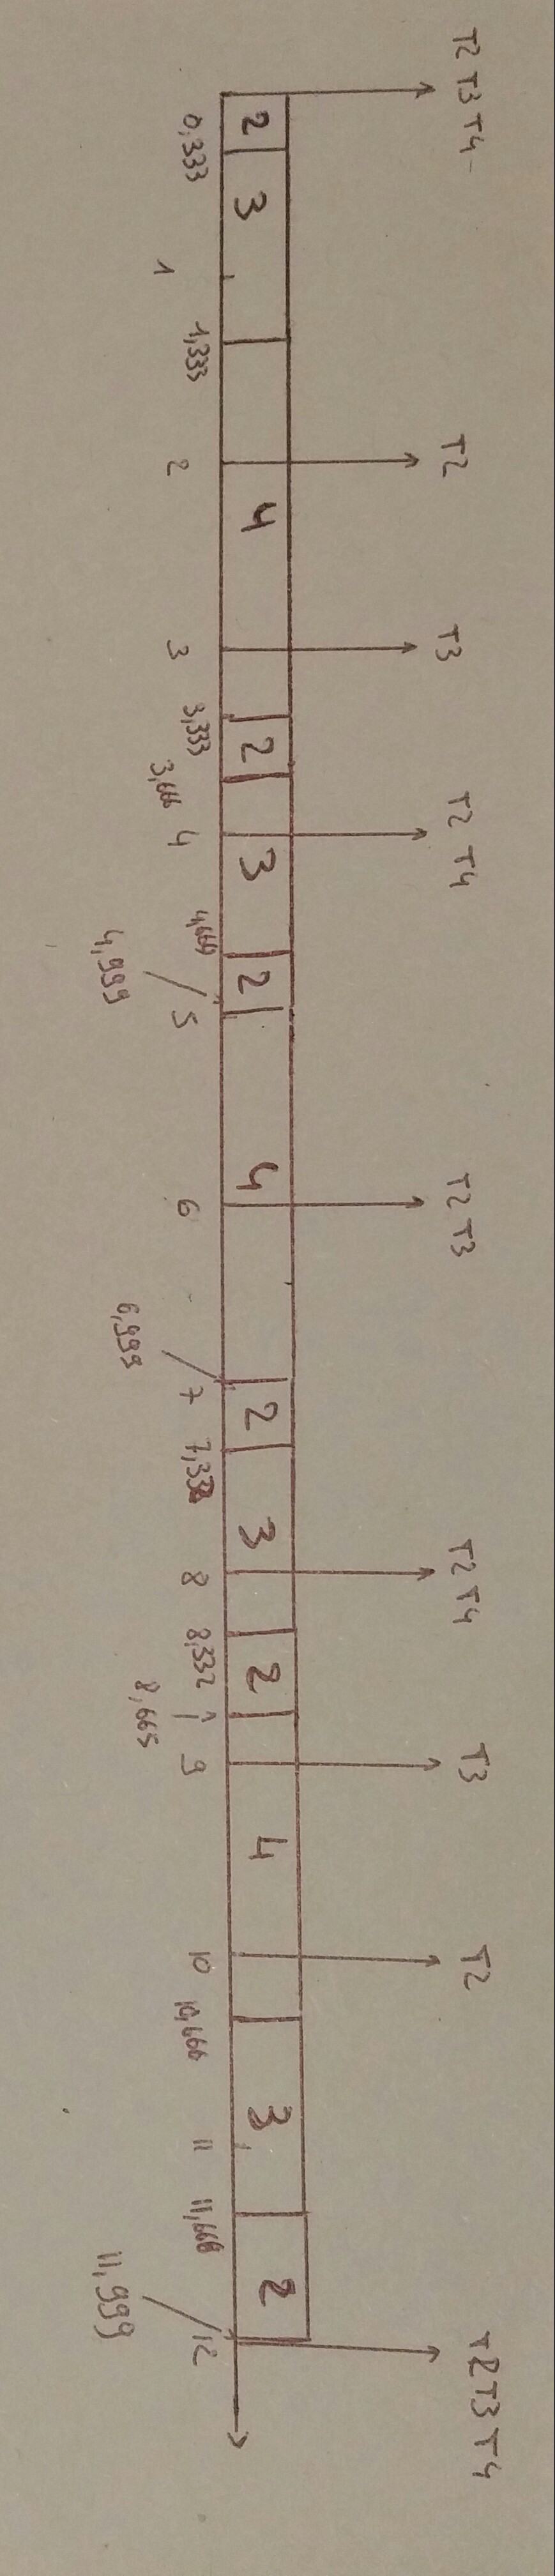 T2 T3 T4
T2
T3
T2 T4
T2 T3
T2 T4
T3
T2
T2 T3 T4
2 3 4 2 3 2 4 2 3 2 4 3 2
0,333 1 1,333 2 3 3,333 3,666 4 4,666 4,999 5 6 6,999 7 8 8,332 8,665 9 10 10,666 11 11,666 11,999 12